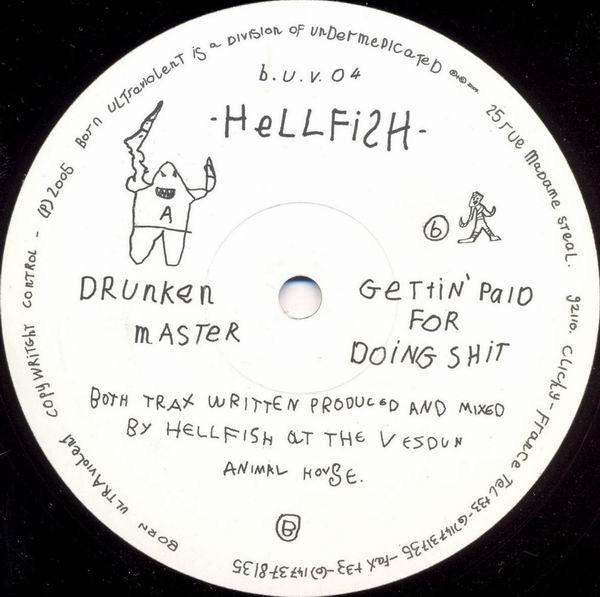 BORN ULTRAvioLenT iS a DiViSion OF UnDerMeDicATeD
25 rUe MaDame STeaL. 92110. CLiCHy-France TeL+33-(0)147317135-FaX+33-(0)147378135
b.U.V.04
-HeLLFiSH-
A
b
DRUnKen
mASTeR
GeTTiN' PaiD
FOR
DOiNG SHiT
BOTH TRAX WRITTEN PRODUCeD AND MiXED
BY HELLFISH aT THE VESDUN
ANiMAL HOUSE.
B
BORN ULTRAVioLenT COPYWRiTGHT CONTROL - (P) 2005